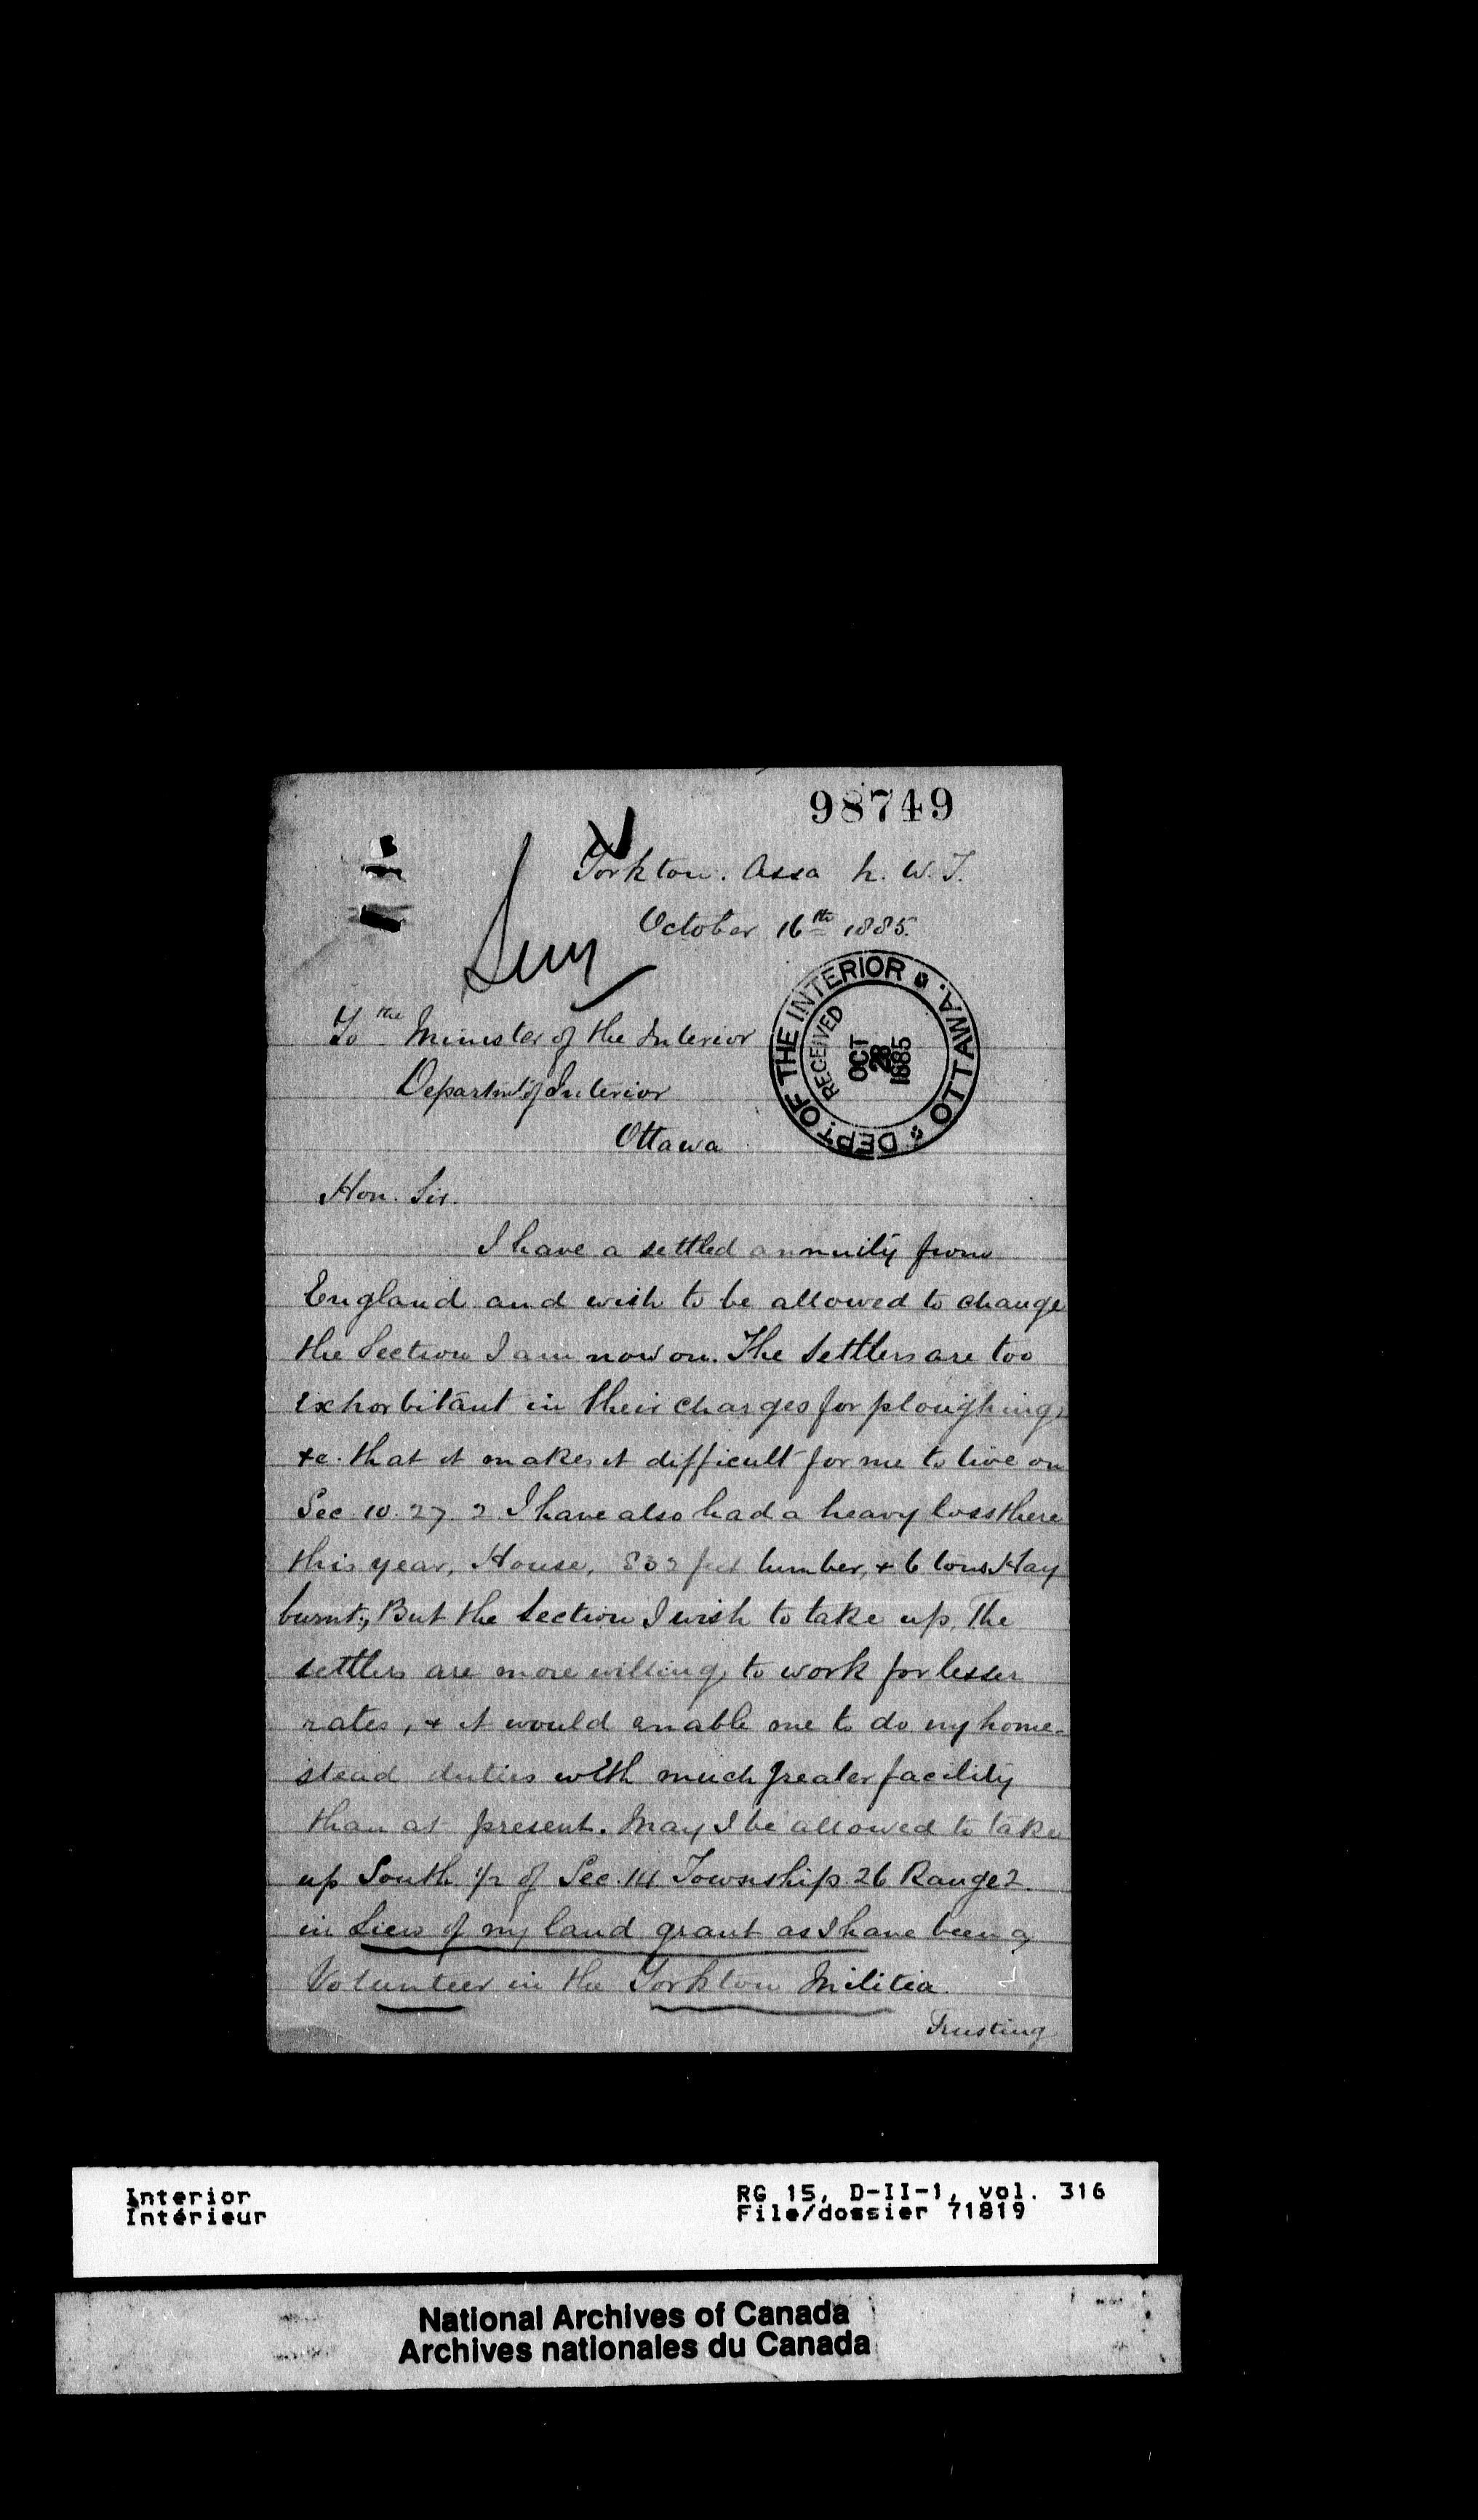 98749
Yorkton. Assa N. W. T.
October 16th 1885.
To the Minister of the Interior
Departmt of Interior
Ottawa
DEPT. OF THE INTERIOR OTTAWA.
RECEIVED
OCT
28
1885
Hon. Sir.
I have a settled annuity from
England and wish to be allowed to change
the Section I am now on. The Settlers are too
exhorbitant in their charges for ploughing
&c. that it makes it difficult for me to live on
Sec. 10. 27. 2. I have also had a heavy loss there
this year, House, feet lumber, & 6 tons Hay
burnt; But the Section I wish to take up, The
settlers are more willing to work for lesser
rates, & it would enable me to do my home-
stead duties with much greater facility
than at present. May I be allowed to take
up South 1/2 of Sec. 14 Township 26 Range 2.
in Lieu of my land grant as I have been a
Volunteer in the Yorkton Militia.
Trusting
Interior
Intérieur
RG 15, D-II-1, vol. 316
File/dossier 71819
National Archives of Canada
Archives nationales du Canada